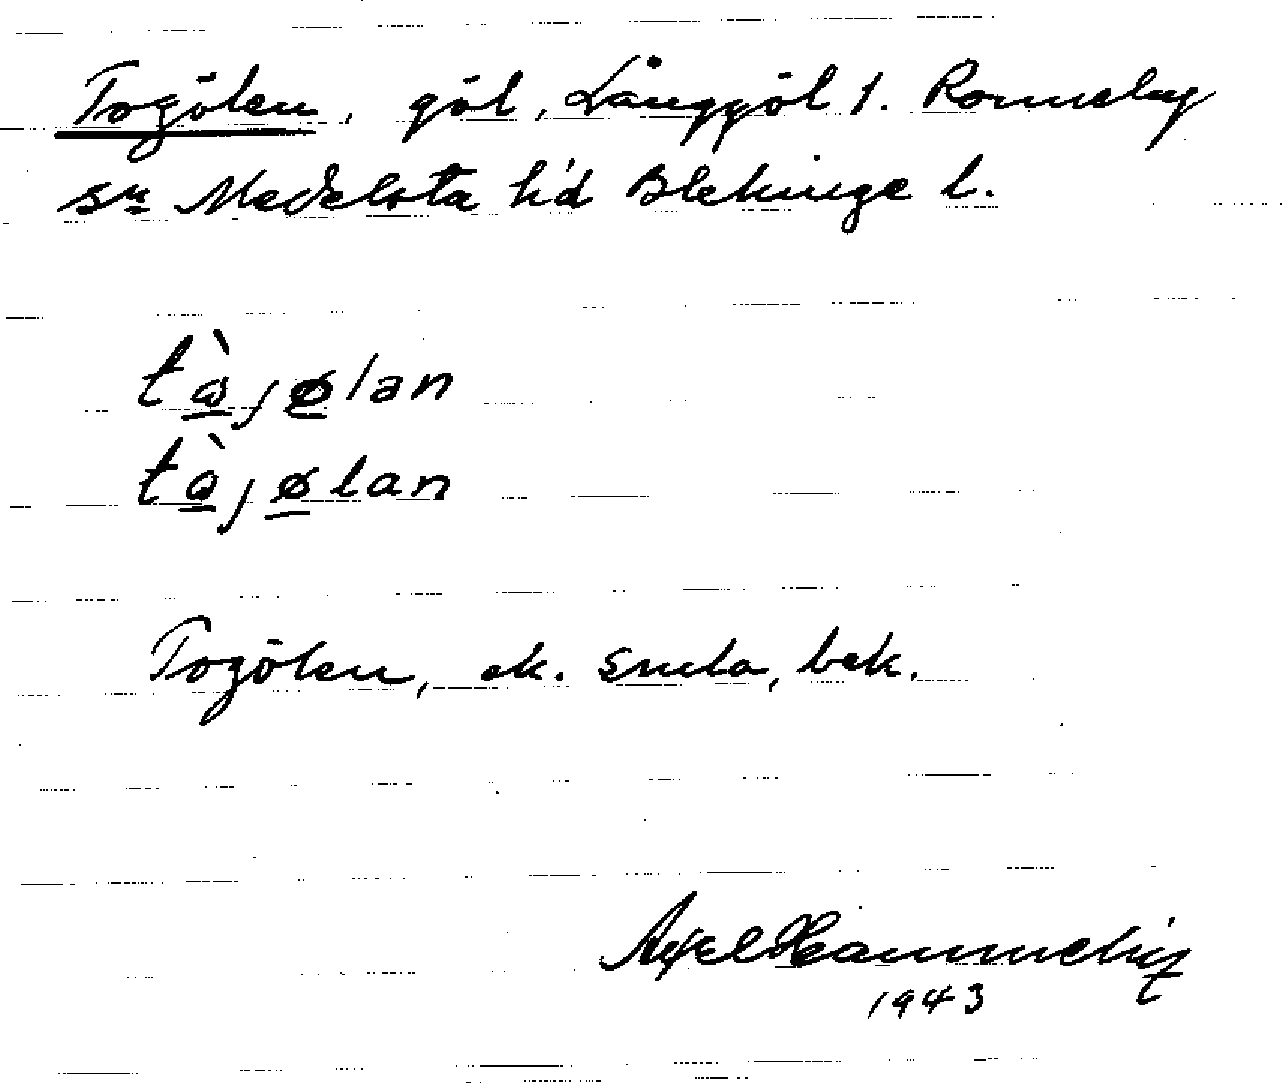 Togölen, göl, Långgöl 1. Ronneby
sn Medelsta hd Blekinge l.
tàjølan
tàjølan
Togölen, ek. snula, bek.
Axel
1943